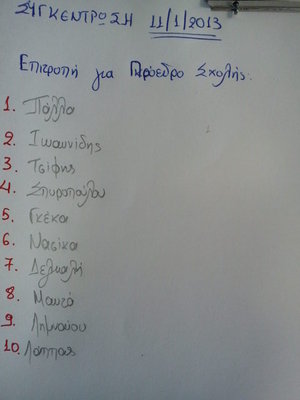 ΣΥΓΚΕΝΤΡΩΣΗ 11/1/2013
Επιτροπή για Πρόεδρο Σχολής:
1. Πάλλα
2. Ιωαννίδης
3. Τσίφης
4. Σπυροπούλου
5. Γκέκα
6. Νασίκα
7. Δελκαλή
8.
9. Λημναίου
10. Λάππας